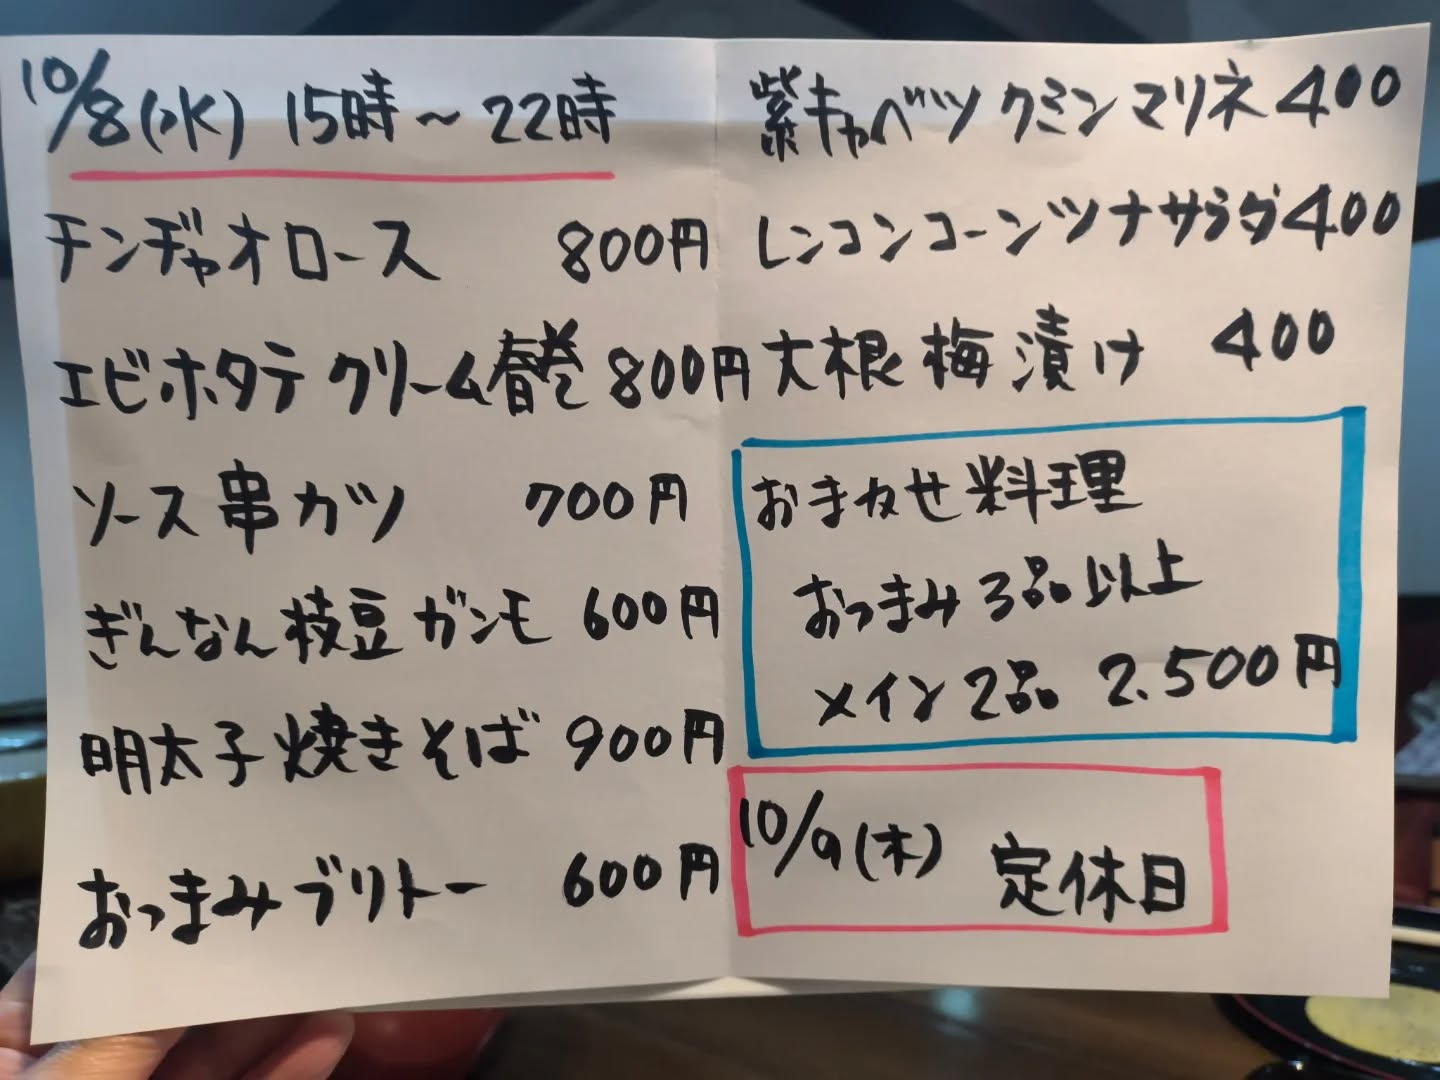 10/8(水) 15時～22時
チンヂャオロース 800円
エビホタテクリーム春巻 800円
ソース串カツ 700円
ぎんなん枝豆ガンモ 600円
明太子焼きそば 900円
おつまみブリトー 600円
紫キャベツクミンマリネ 400
レンコンコーンツナサラダ 400
大根梅漬け 400
おまかせ料理
おつまみ3品以上
メイン2品 2.500円
10/9(木) 定休日